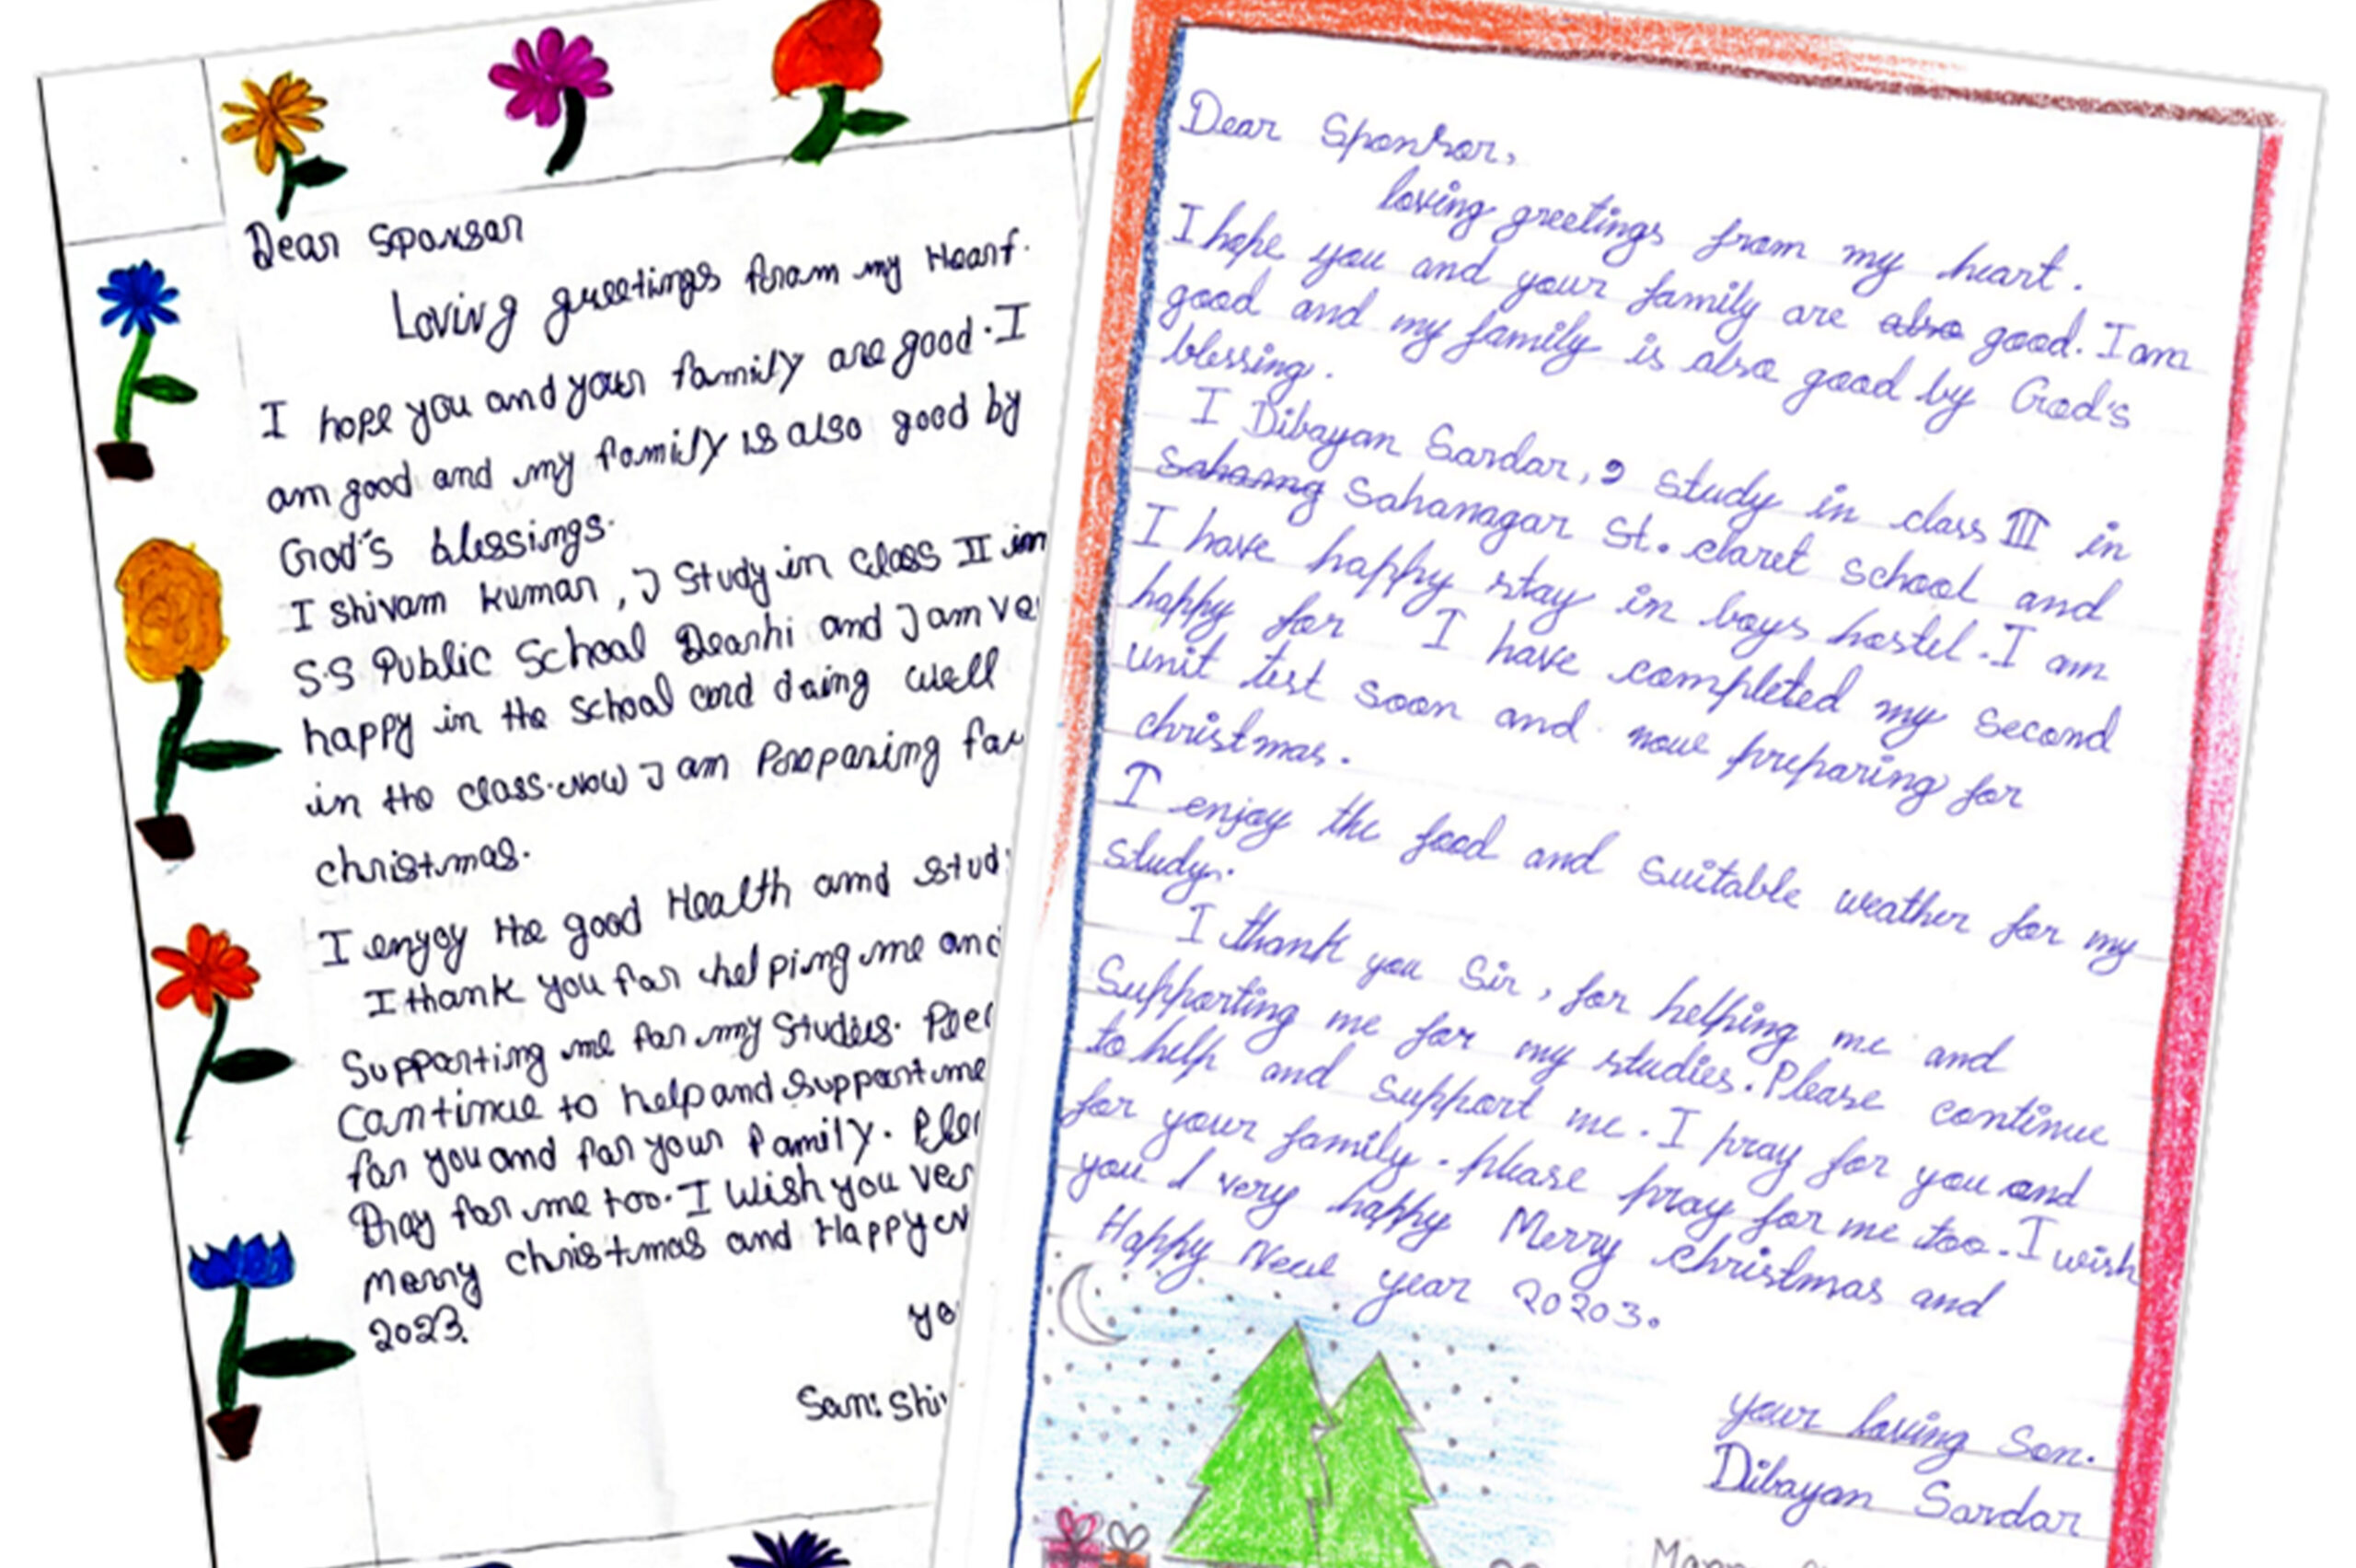 Dear Sponsor
Loving greetings from my Heart.
I hope you and your family are good. I
am good and my family is also good by
God's blessings.
I Shivam Kumar, I Study in Class II in
S.S Public School Dearhi and I am ve
happy in the School and doing well
in the class. Now I am Preparing for
christmas.
I enjoy the good Health and stud
I thank you for helping me and
Supporting me for my Studies. Plea
Continue to help and support me
for you and for your family. Plea
Pray for me too. I Wish you ver
merry christmas and Happy N
2023.
yo
Son: Shiv
Dear Sponsor,
loving greetings from my heart.
I hope you and your family are also good. I am
good and my family is also good by God's
blessing.
I Dibayan Sardar, I study in class III in
Sahanagar St. claret school and
I have happy stay in boys hostel. I am
happy for I have completed my second
unit test soon and now preparing for
christmas.
I enjoy the food and suitable weather for my
study.
I thank you Sir, for helping me and
Supporting me for my studies. Please continue
to help and support me. I pray for you and
for your family. please pray for me too. I wish
you I very happy Merry Christmas and
Happy New year 20203.
your loving Son.
Dibayan Sardar